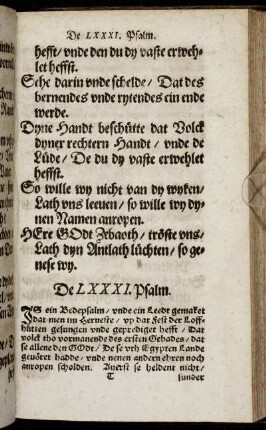 De LXXXI. Psalm.
hefft/ vnde den du dy vaste erweh-
let heffst.
Sehe darin vnde schelde/ Dat des
bernendes vnde rytendes ein ende
werde.
Dyne Handt beschütte dat Volck
dyner rechtern Handt/ vnde de
Lüde/ De du dy vaste erwehlet
heffst.
So wille wy nicht van dy wyken/
Lath vns leeuen/ so wille wy dy-
nen Namen anropen.
HEre GOdt Zebaoth/ tröste vns/
Lath dyn Antlath lüchten/ so ge-
nese wy.
De LXXXI. Psalm.
IS ein Bedepsalm/ vnde ein Leedt gemaket
dat men im Herueste/ vp dat Fest der Loff-
hütten gesungen vnde geprediget hefft/ Dat
volck tho vormanende des ersten Gebades/ dat
se allene den GOdt/ De se vth Egypten Lande
geuöret hadde/ vnde nenen andern ehren noch
anropen scholden. Auerst se heldent nicht/
T sunder